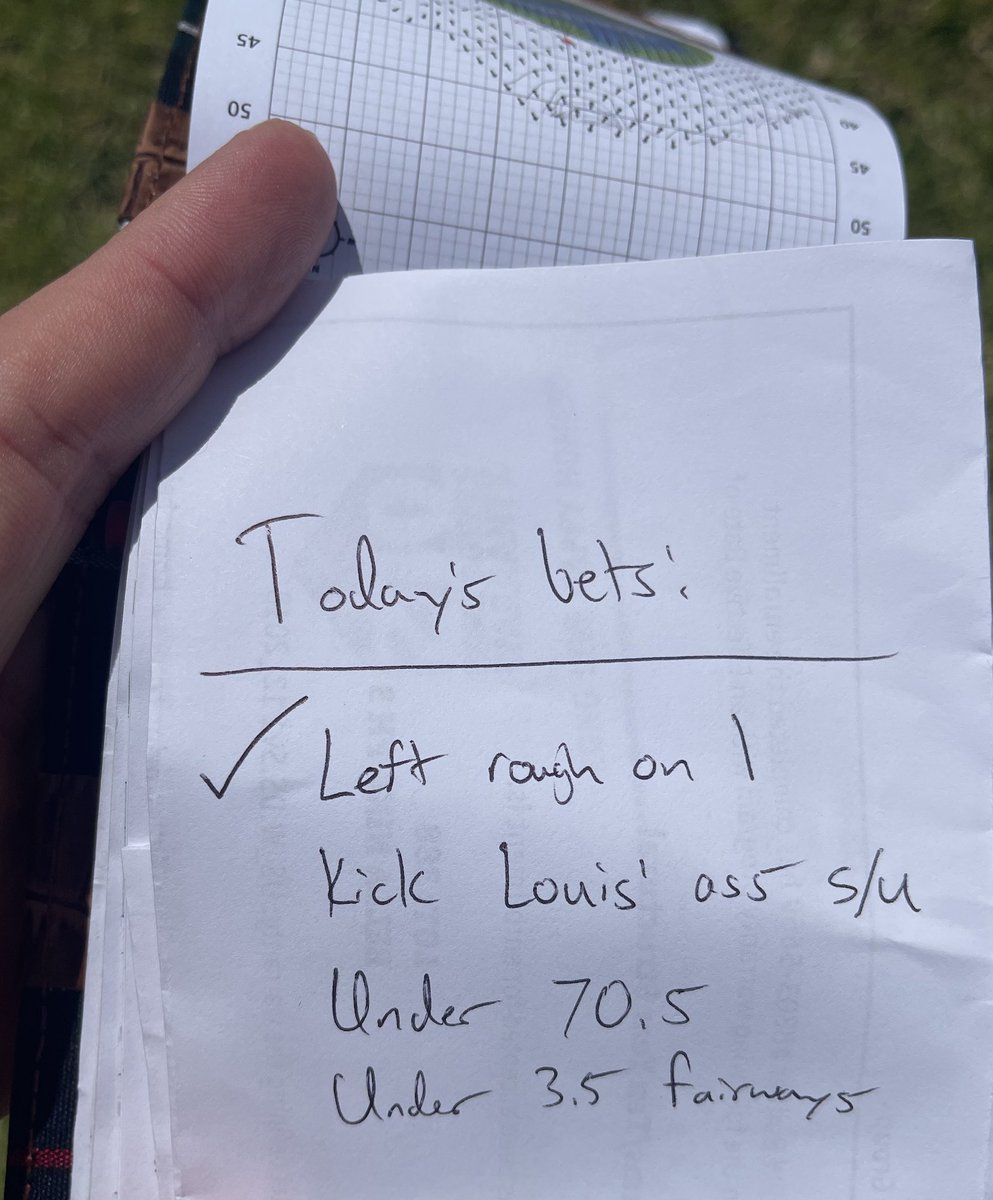 45
50
40
45
50
N
Today's bets:
✓ Left rough on 1
Kick Louis' ass s/u
Under 70.5
Under 3.5 fairways